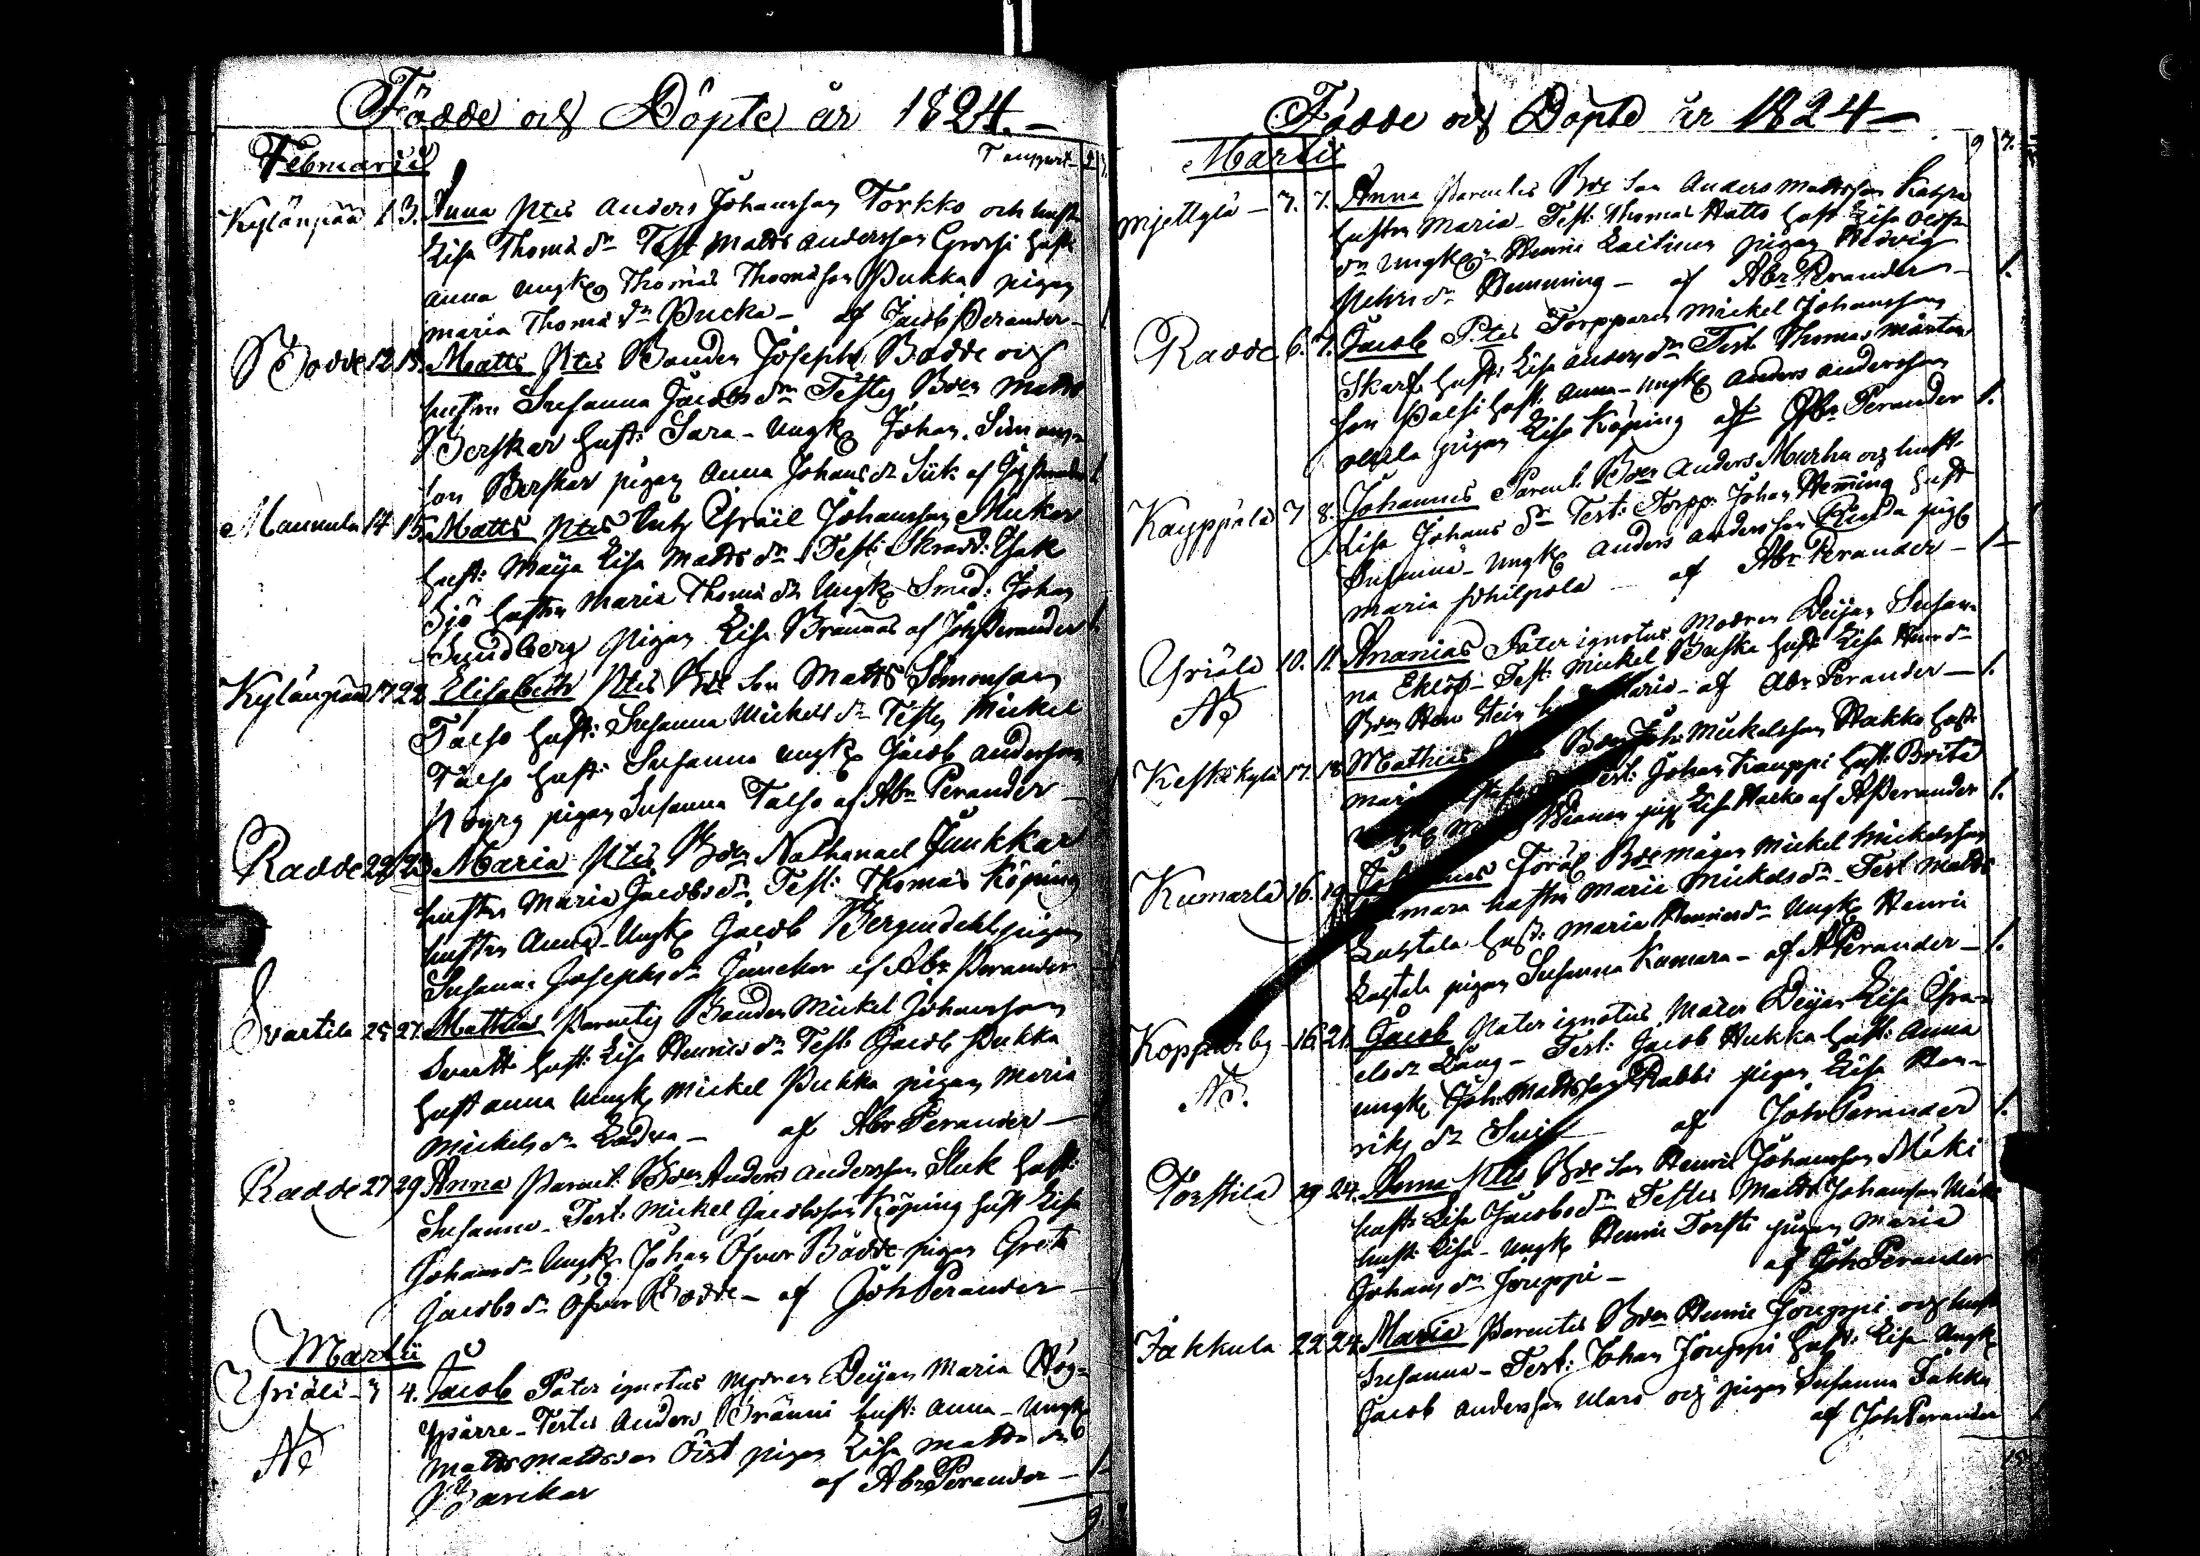 Födde och Döpte år 1824.
Februarii
Transport
Kylänpää 13. Anna Ptes Anders Johansson Torkko och hustr
Lisa Thomä dr Test Matts Andersson Grossi hust
Anna Ungk Thomas Thomasson Pukka pigan
Maria Thomä dr Pucka - af Jacob Perander
Bodde 12 13. Matts Ptes Bonden Joseph Bodde och
hustru Susanna Jacobs dr Testes Bdn Matts
Berskar hust: Sara - Ungk Johan Simons-
son Berskar pigan Anna Johans dr Siik af
Mannula 14 15. Matts Ptes Johansson
hust: Maija Lisa Matts dr Test: Skradd: Isak
Sjö hustru Maria Thomä dr Ungk Smed: Johan
Sundberg pigan Lisa Brännas af Joh Perander
Kylänpää 17 22. Elisabeth Ptes Bde Son Matts Simonsson
Talso hust: Susanna Mickels dr Testes Mickel
Talso hust: Susanna Ungk Jacob Andersson
pigan Susanna Talso af Abr Perander
Radde 22 23 Maria Ptes Bdn Nathanael Junkkar
hustru Maria Jacobs dr Test: Thomas Köping
hustru Anna - Ungk Jacob Bergendahl pigan
Susanna Josephs dr Junckar af Abr Perander
Svartila 25 27. Matthias Parentes Bonden Mickel Johansson
Svartti hust: Lisa Henrics dr Test: Jacob Pukka
hust Anna Ungk Mickel Pukka pigan Maria
Mickels dr - af Abr Perander
Radde 27 29 Anna Parent: Bdn Anders Andersson hust:
Susanna - Test: Mickel Jacobsson Köping hust Lisa
Johans dr Ungk Johan Öfver Bodde pigan Greta
Jacobs dr Öfver Bodde - af Joh Perander
Martii
Yriälä 3 4. Jacob Pater ignotus Modren Deijan Maria Hög-
spärre - Testes Anders Bränni hust: Anna - Ungk
Matts Mattsson Öist pigan Lisa Matts dr
af Abr Perander
9.
Födde och Döpte år 1824
Martii
9 7.
Mjettylä - 7. 7. Anna Parentes Bde Son Anders Mattsson
hustru Maria - Test: Thomas Hatto hust Lisa
dr Ungk Henric pigan Hedvig
Pehrs dr Hemming - af Abr Perander 1.
Radde 6. 7. Jacob P:tes Torpparen Mickel Johansson
Skarf: hust: Lisa Anders dr Test Thomas Mårten
son Palsi hust: Anna - Ungk Anders Andersson
pigan Lisa Köping af Abr Perander 1.
Kauppila 7 8. Johannes Parent: Bdn Anders Murha och hust
Lisa Johans dr Test: Torpp: Johan Heming hust
Susanna - Ungk Anders Andersson pig
Maria Philpola - af Abr Perander - 1
Yriälä 10. 11. Ananias Pater ignotus Modren Deijan Susan-
na Eklöf - Test: Mickel hust Lisa
Bdn Hen Stein Maria - af Abr Perander - 1.
Keskikylä 17. 18 Mathias Bdn Joh: Mickelsson Hakko hust:
Test: Johan Kauppi hust: Brita
pig Lisa af A Perander 1.
Kumarla 16. 19 Johannes Föräl Bde mågen Mickel Mickelsson
Kumara hustru Maria Mickels dr - Test Matts
hust: Maria Henrics dr Ungk Henric
pigan Susanna Kumara - af A Perander - 1.
Kopparby 16 21. Jacob Pater ignotus Mater Deijan Lisa Isra-
els dr Lång - Test: Jacob Hukka hust: Anna
Ungk Joh: Mattsson Rabbi pigan Lisa Hen-
riks dr af Joh Perander 1.
Torstila 19 24. Anna Ptes Bde Son Henric Johansson Mäki
hust: Lisa Jacobs dr Testes Matts Johansson Mäki
hust: Lisa - Ungk Henric Torsti pigan Maria
Johans dr Jouppi - af Joh Perander
Jakkula 22 24. Maria Parentes Bdn Henric Jouppi och hust
Susanna - Test: Johan Jouppi hust: Lisa Ungk
Jacob Andersson och pigan Susanna Jakku
af Joh Perander